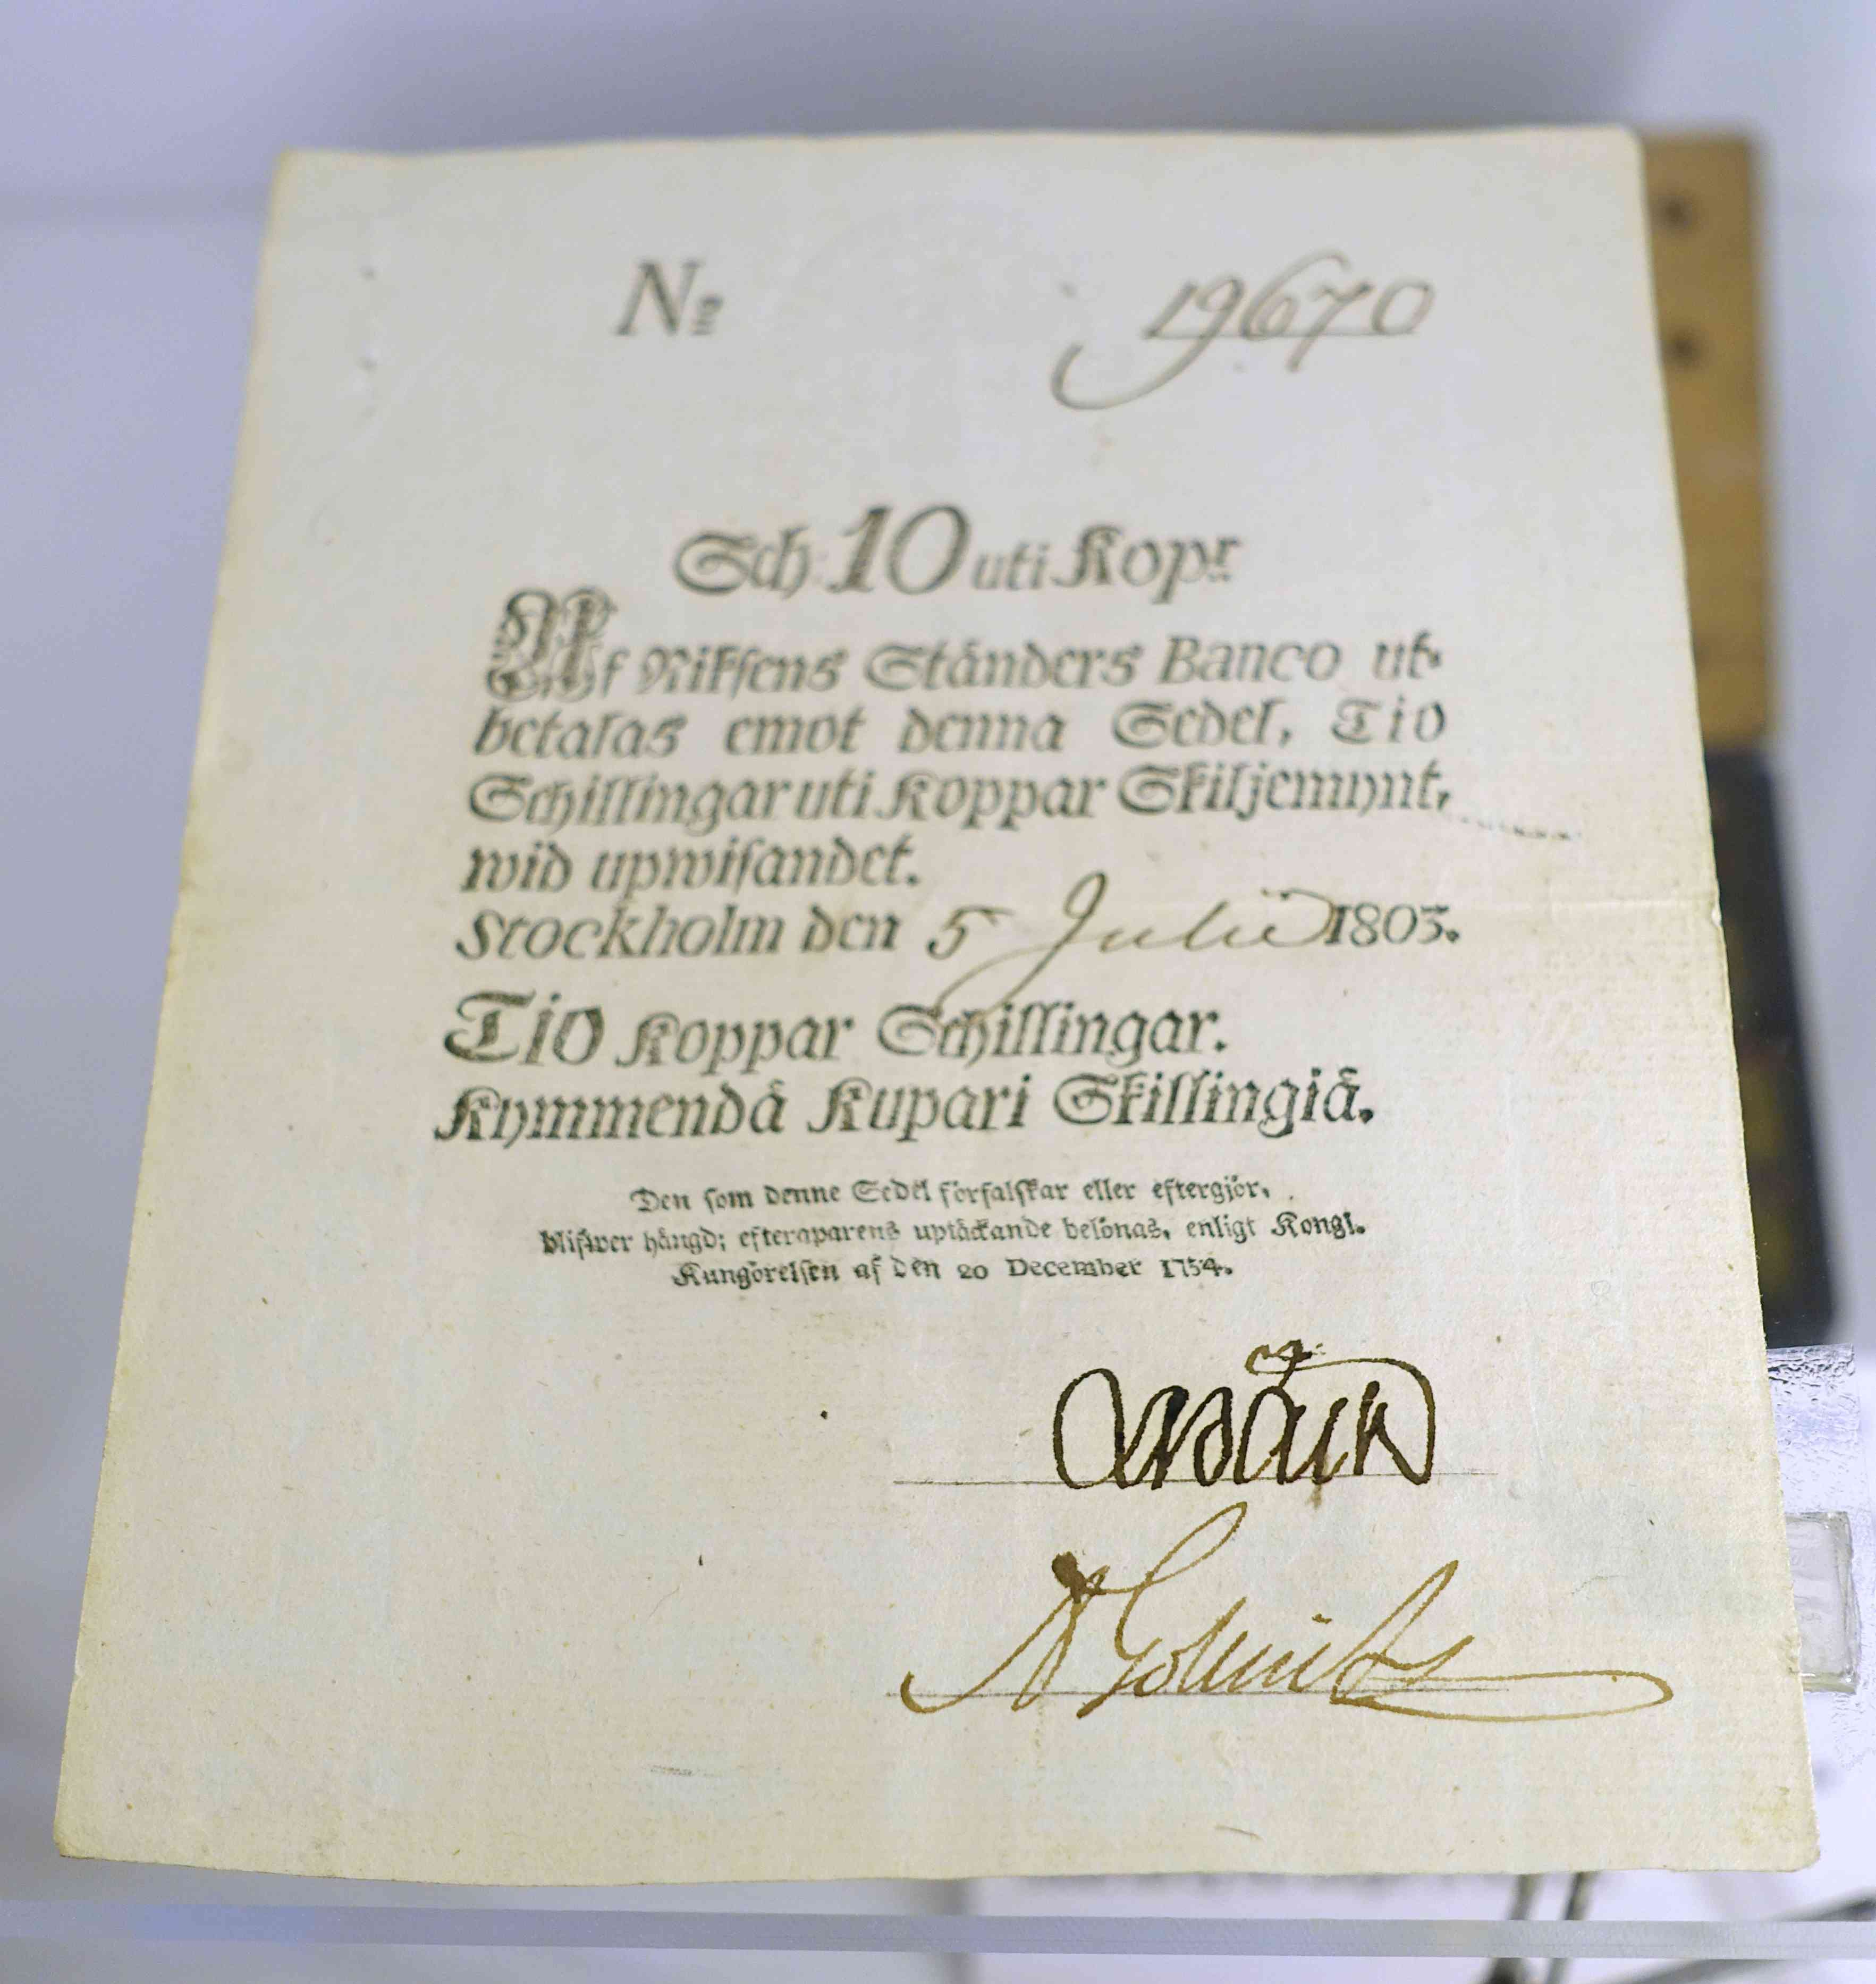 No 19670
Sch: 10 uti Kopr
Af Riksens Ständers Banco ut-
betalas emot denna Sedel, Tio
Schillingar uti Koppar Skiljemynt,
wid upwisandet.
Stockholm den 5 Julii 1803.
Tio Koppar Schillingar.
Kymmendä Kupari Skillingiä.
Den som denne Sedel förfalskar eller eftergjör,
blifwer hängd; efteraparens uptäckande belönas, enligt Kongl.
Kungörelsen af den 20 December 1754.